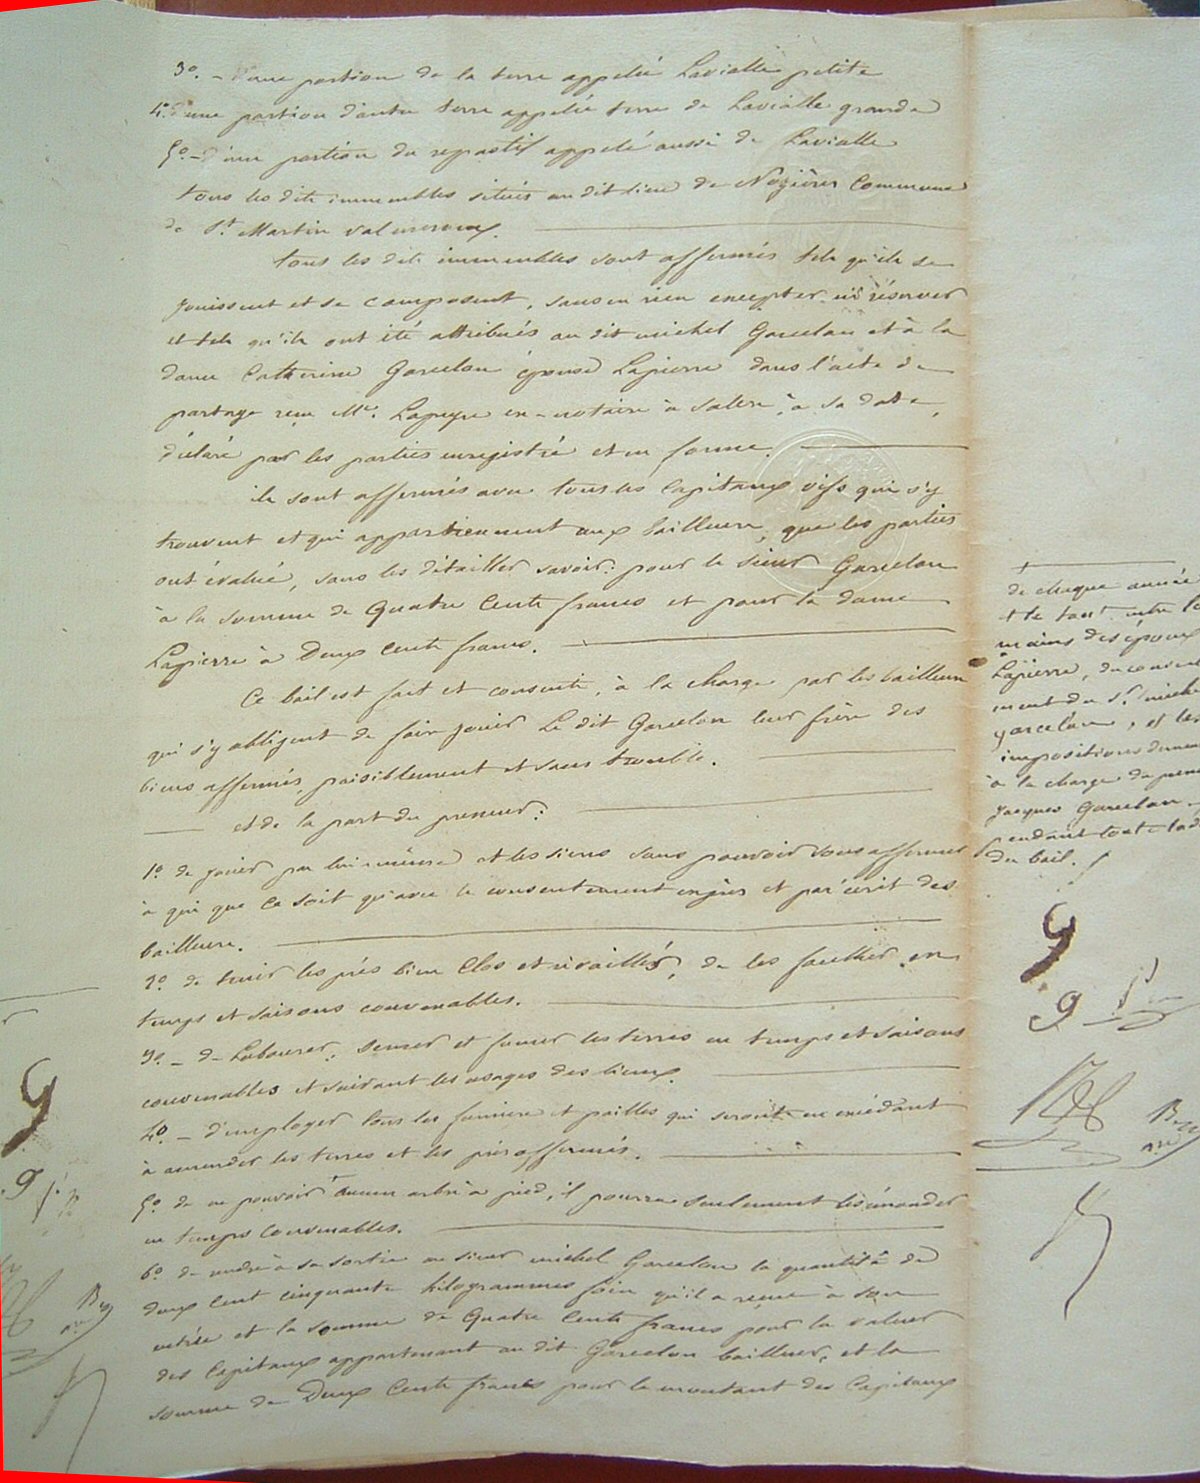 3o. - d'une portion de la terre appelée Lavialle petite
4o. d'une portion d'autre terre appelée terre de Lavialle grande
5o - d'une portion du repastif appelé aussi de Lavialle
tous les dits immeubles situés au dit lieu de Nozières Commune
de St. Martin valmeroux.
tous les dits immeubles sont affermés tels qu'ils se
jouissent et se composent, sans en rien excepter ni réserver
et tels qu'ils ont été attribués au dit michel Garcelon et à la
dame Catherine Garcelon épouse Lapierre dans l'acte de
partage reçu Me. Lapeyre ex-notaire à Salers, à sa date,
déclaré par les parties enregistré et en forme.
ils sont affermés avec tous les Capitaux vifs qui s'y
trouvent et qui appartiennent aux bailleurs, que les parties
ont évalué, sans les détailler savoir: pour le sieur Garcelon
à la somme de Quatre Cents francs et pour la dame
Lapierre à Deux Cents francs.
Ce bail est fait et consenti, à la charge par les bailleurs
qui s'y obligent de faire jouir Le dit Garcelon leur frère des
biens affermés, paisiblement et sans trouble.
et de la part du preneur:
1o. de jouir par lui-même et les siens sans pouvoir sous affermer
à qui que ce soit qu'avec le consentement exprès et par écrit des
bailleurs.
2o. de tenir les prés bien Clos et , de les faucher en
temps et saisons convenables.
3o. - de Labourer, semer et fumer les terres en temps et saisons
convenables et suivant les usages des lieux.
4o - d'employer tous les fumiers et pailles qui seront en excédant
à amender les terres et les prés affermés.
5o. de ne pouvoir aucun arbre à pied, il pourra seulement les émonder
en temps convenables.
6o. de rendre à sa sortie au sieur michel Garcelon la quantité de
deux cent cinquante kilogrammes foin qu'il a reçue à son
entrée et la somme de Quatre Cents francs pour la valeur
des Capitaux appartenant au dit Garcelon bailleur, et la
somme de Deux Cents francs pour le montant des Capitaux
de chaque année
et le tout entre les
mains des époux
Lapierre, du consen
ment du Sr. michel
garcelon, et les
impositions
à la charge du
Jacques Garcelon
pendant toute la
du bail.